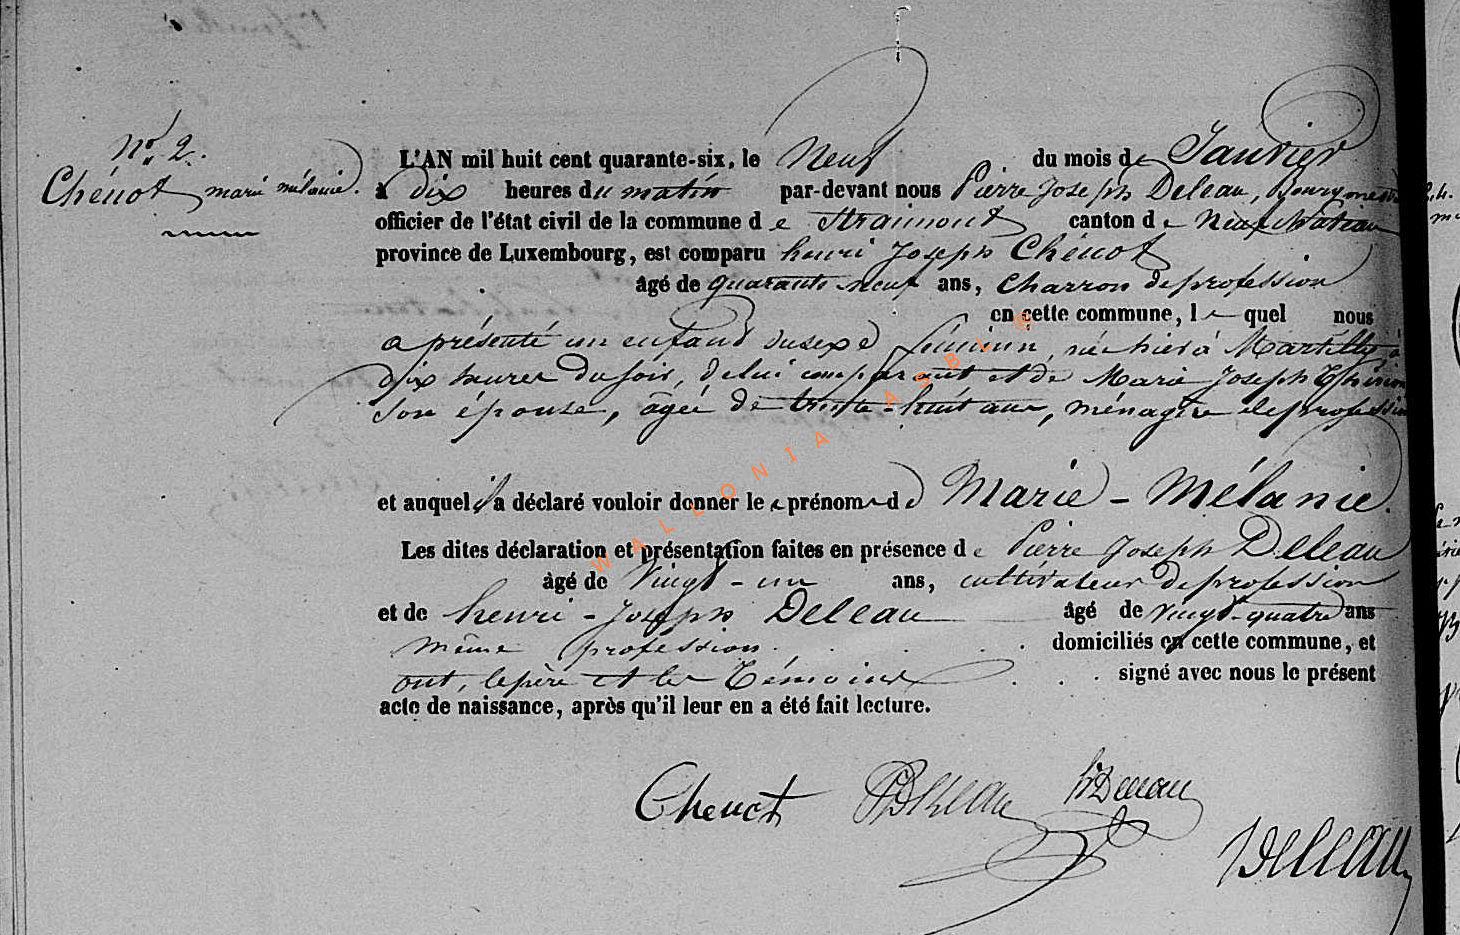 No. 2.
Chénot marie mélanie.
L'AN mil huit cent quarante-six, le Neuf du mois de Janvier
à dix heures du matin par-devant nous Pierre Joseph Deleau, Bourgmestre
officier de l'état civil de la commune de Straimont canton de Neufchateau
province de Luxembourg, est comparu henri Joseph Chénot
âgé de quarante neuf ans, Charron de profession
en cette commune, le quel nous
a présenté un enfant du sexe féminin, né hier à Martilly, à
dix heures du soir, de lui comparant et de Marie Joseph
son épouse, âgée de trente-huit ans, ménagère de profession
et auquel il a déclaré vouloir donner le prénom de Marie-Mélanie.
Les dites déclaration et présentation faites en présence de Pierre Joseph Deleau
âgé de Vingt-un ans, cultivateur de profession
et de henri-Joseph Deleau âgé de vingt-quatre ans
même profession. domiciliés en cette commune, et
ont, le père et les Témoins signé avec nous le présent
acte de naissance, après qu'il leur en a été fait lecture.
Chenot PJDeleau hJDeleau
Deleau
WALLONIA ASBL ©